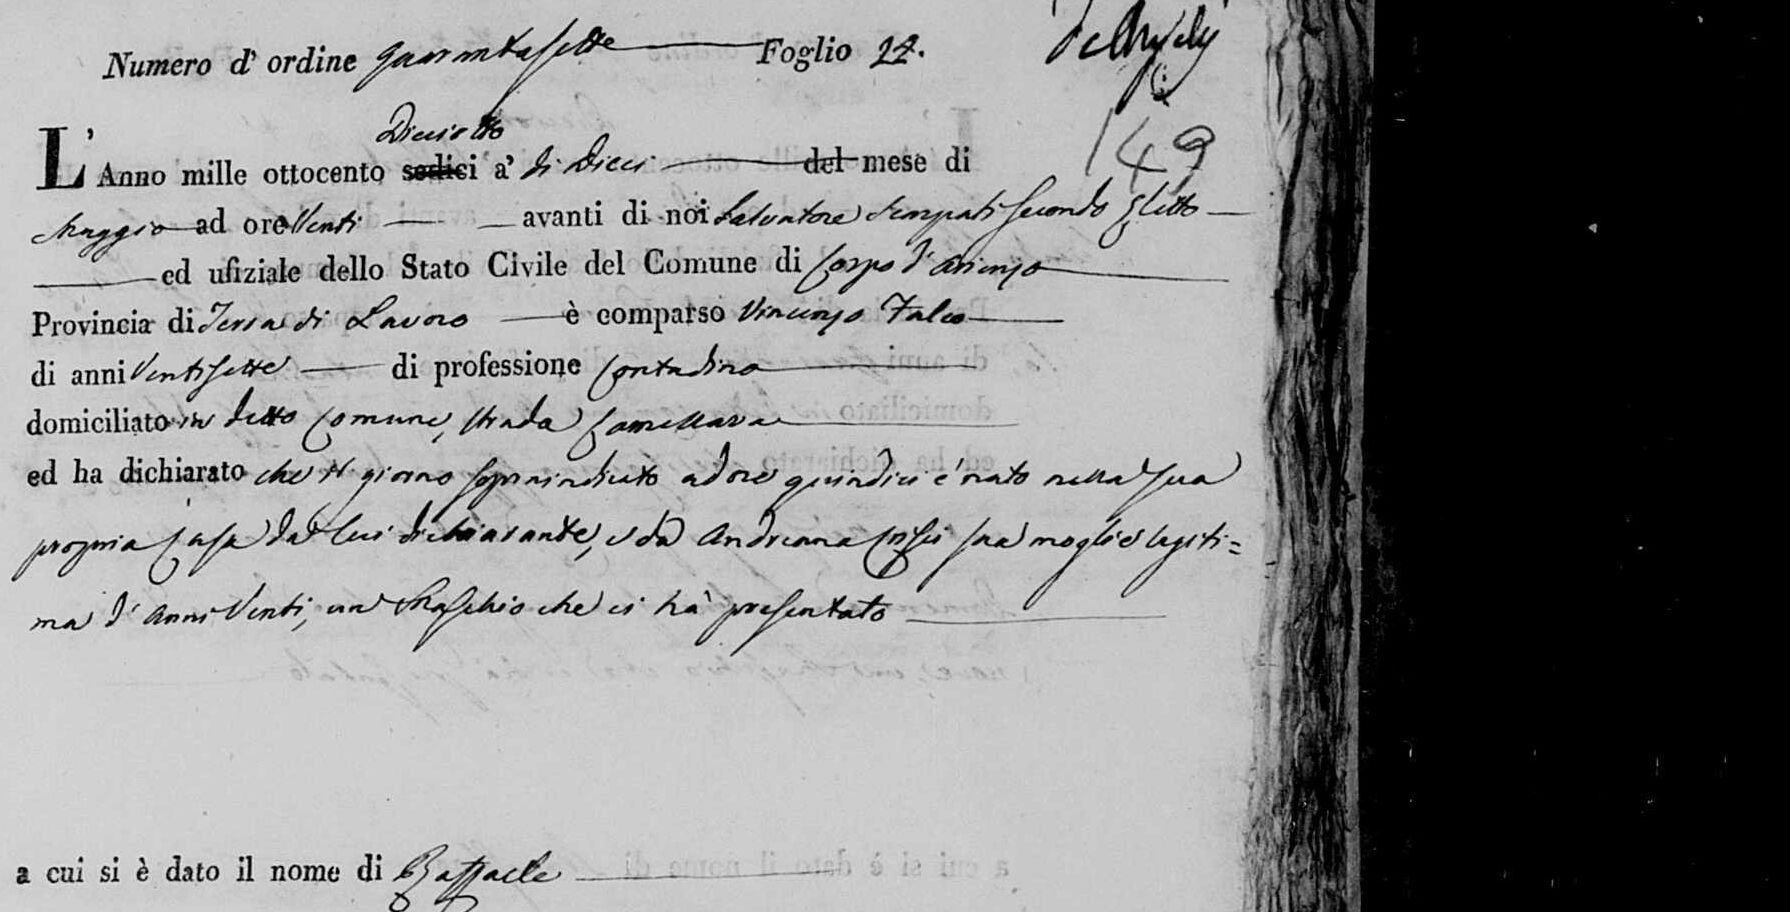 Numero d' ordine quarantasette Foglio 24.
149
Diciotto
L'Anno mille ottocento sedici a' dì Dieci del mese di
Maggio ad ore Venti avanti di noi Salvatore Scarpati secondo Eletto
ed ufiziale dello Stato Civile del Comune di Corpo d'Arienzo
Provincia di Terra di Lavoro è comparso Vincenzo Falco
di anni Ventisette di professione Contadino
domiciliato in detto Comune, strada
ed ha dichiarato che il giorno sopraindicato ad ore quindici è nato nella sua
propria Casa da lui dichiarante, e da Andreana sua moglie legiti=
ma d'anni Venti, un Maschio che ci hà presentato
a cui si è dato il nome di Raffaele